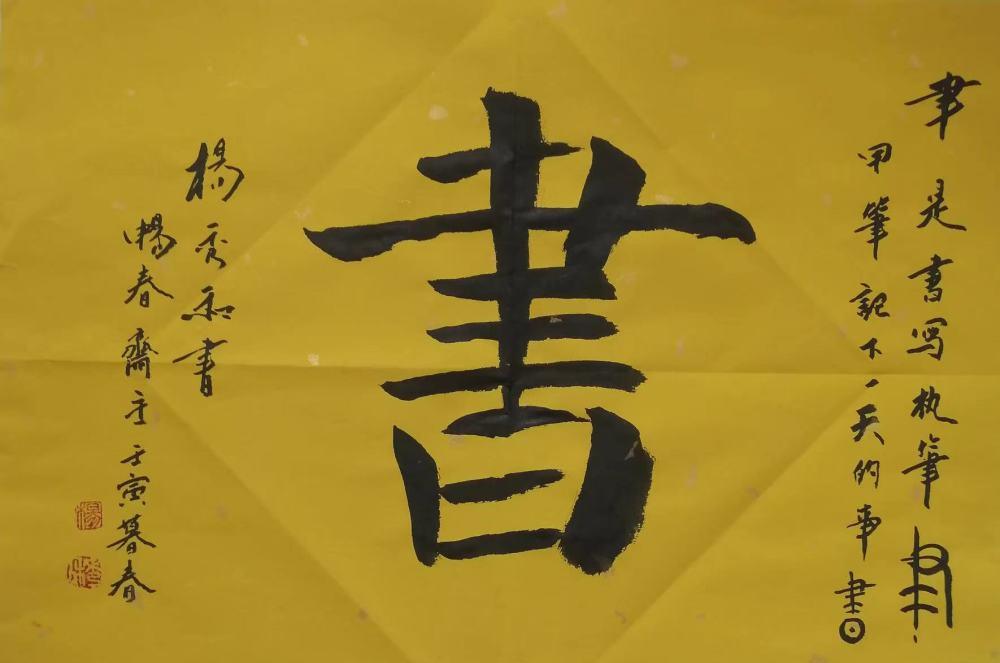 聿是書写执筆
用筆記下一天的事書
書
楊秀和書
暢春齋主壬寅暮春